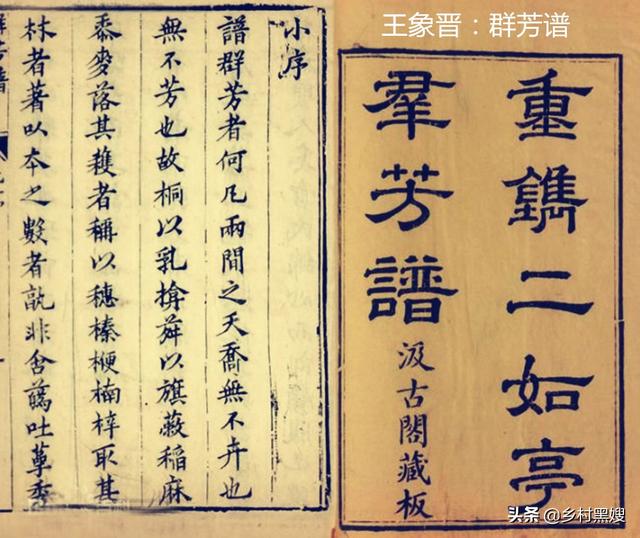 王象晋：群芳谱
重鐫二如亭
羣芳譜
汲古閣藏板
小序
譜群芳者何凡兩間之天喬無不卉也
無不芳也故桐以乳揜蕣以旗蔽稻麻
黍麥落其穫者稱以穗榛楩楠梓取其
材者著以夲之數者孰非含蘤吐萼秀
头条 @乡村黑嫂